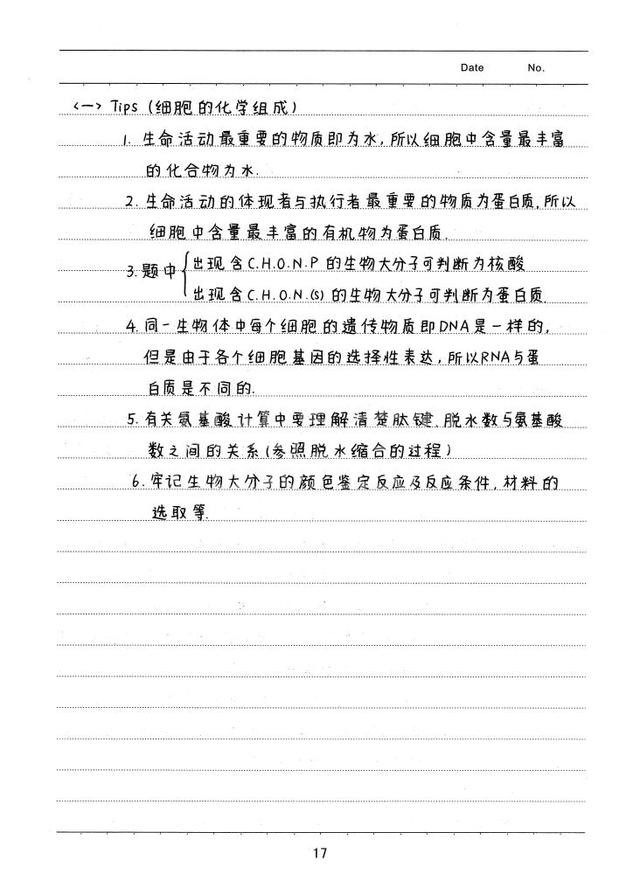 Date No.
<一> Tips (细胞的化学组成)
1. 生命活动最重要的物质即为水,所以细胞中含量最丰富
的化合物为水.
2. 生命活动的体现者与执行者最重要的物质为蛋白质,所以
细胞中含量最丰富的有机物为蛋白质.
3. 题中{出现含C.H.O.N.P的生物大分子可判断为核酸
出现含C.H.O.N.(S)的生物大分子可判断为蛋白质.
4. 同一生物体中每个细胞的遗传物质即DNA是一样的,
但是由于各个细胞基因的选择性表达,所以RNA与蛋
白质是不同的.
5. 有关氨基酸计算中要理解清楚肽键.脱水数与氨基酸
数之间的关系(参照脱水缩合的过程)
6. 牢记生物大分子的颜色鉴定反应及反应条件,材料的
选取等.
17